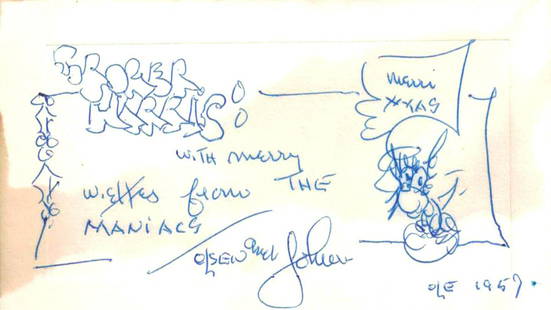 ROGER
HARRIS
merri
XXAS
WITH merry
wishes from THE
MANIACS
OLSEN and
OLE 1957.